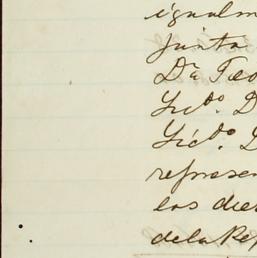 igualm
Junta
Da Teo
Licdo. D
Licdo. L
represen
los dies
de la Rep